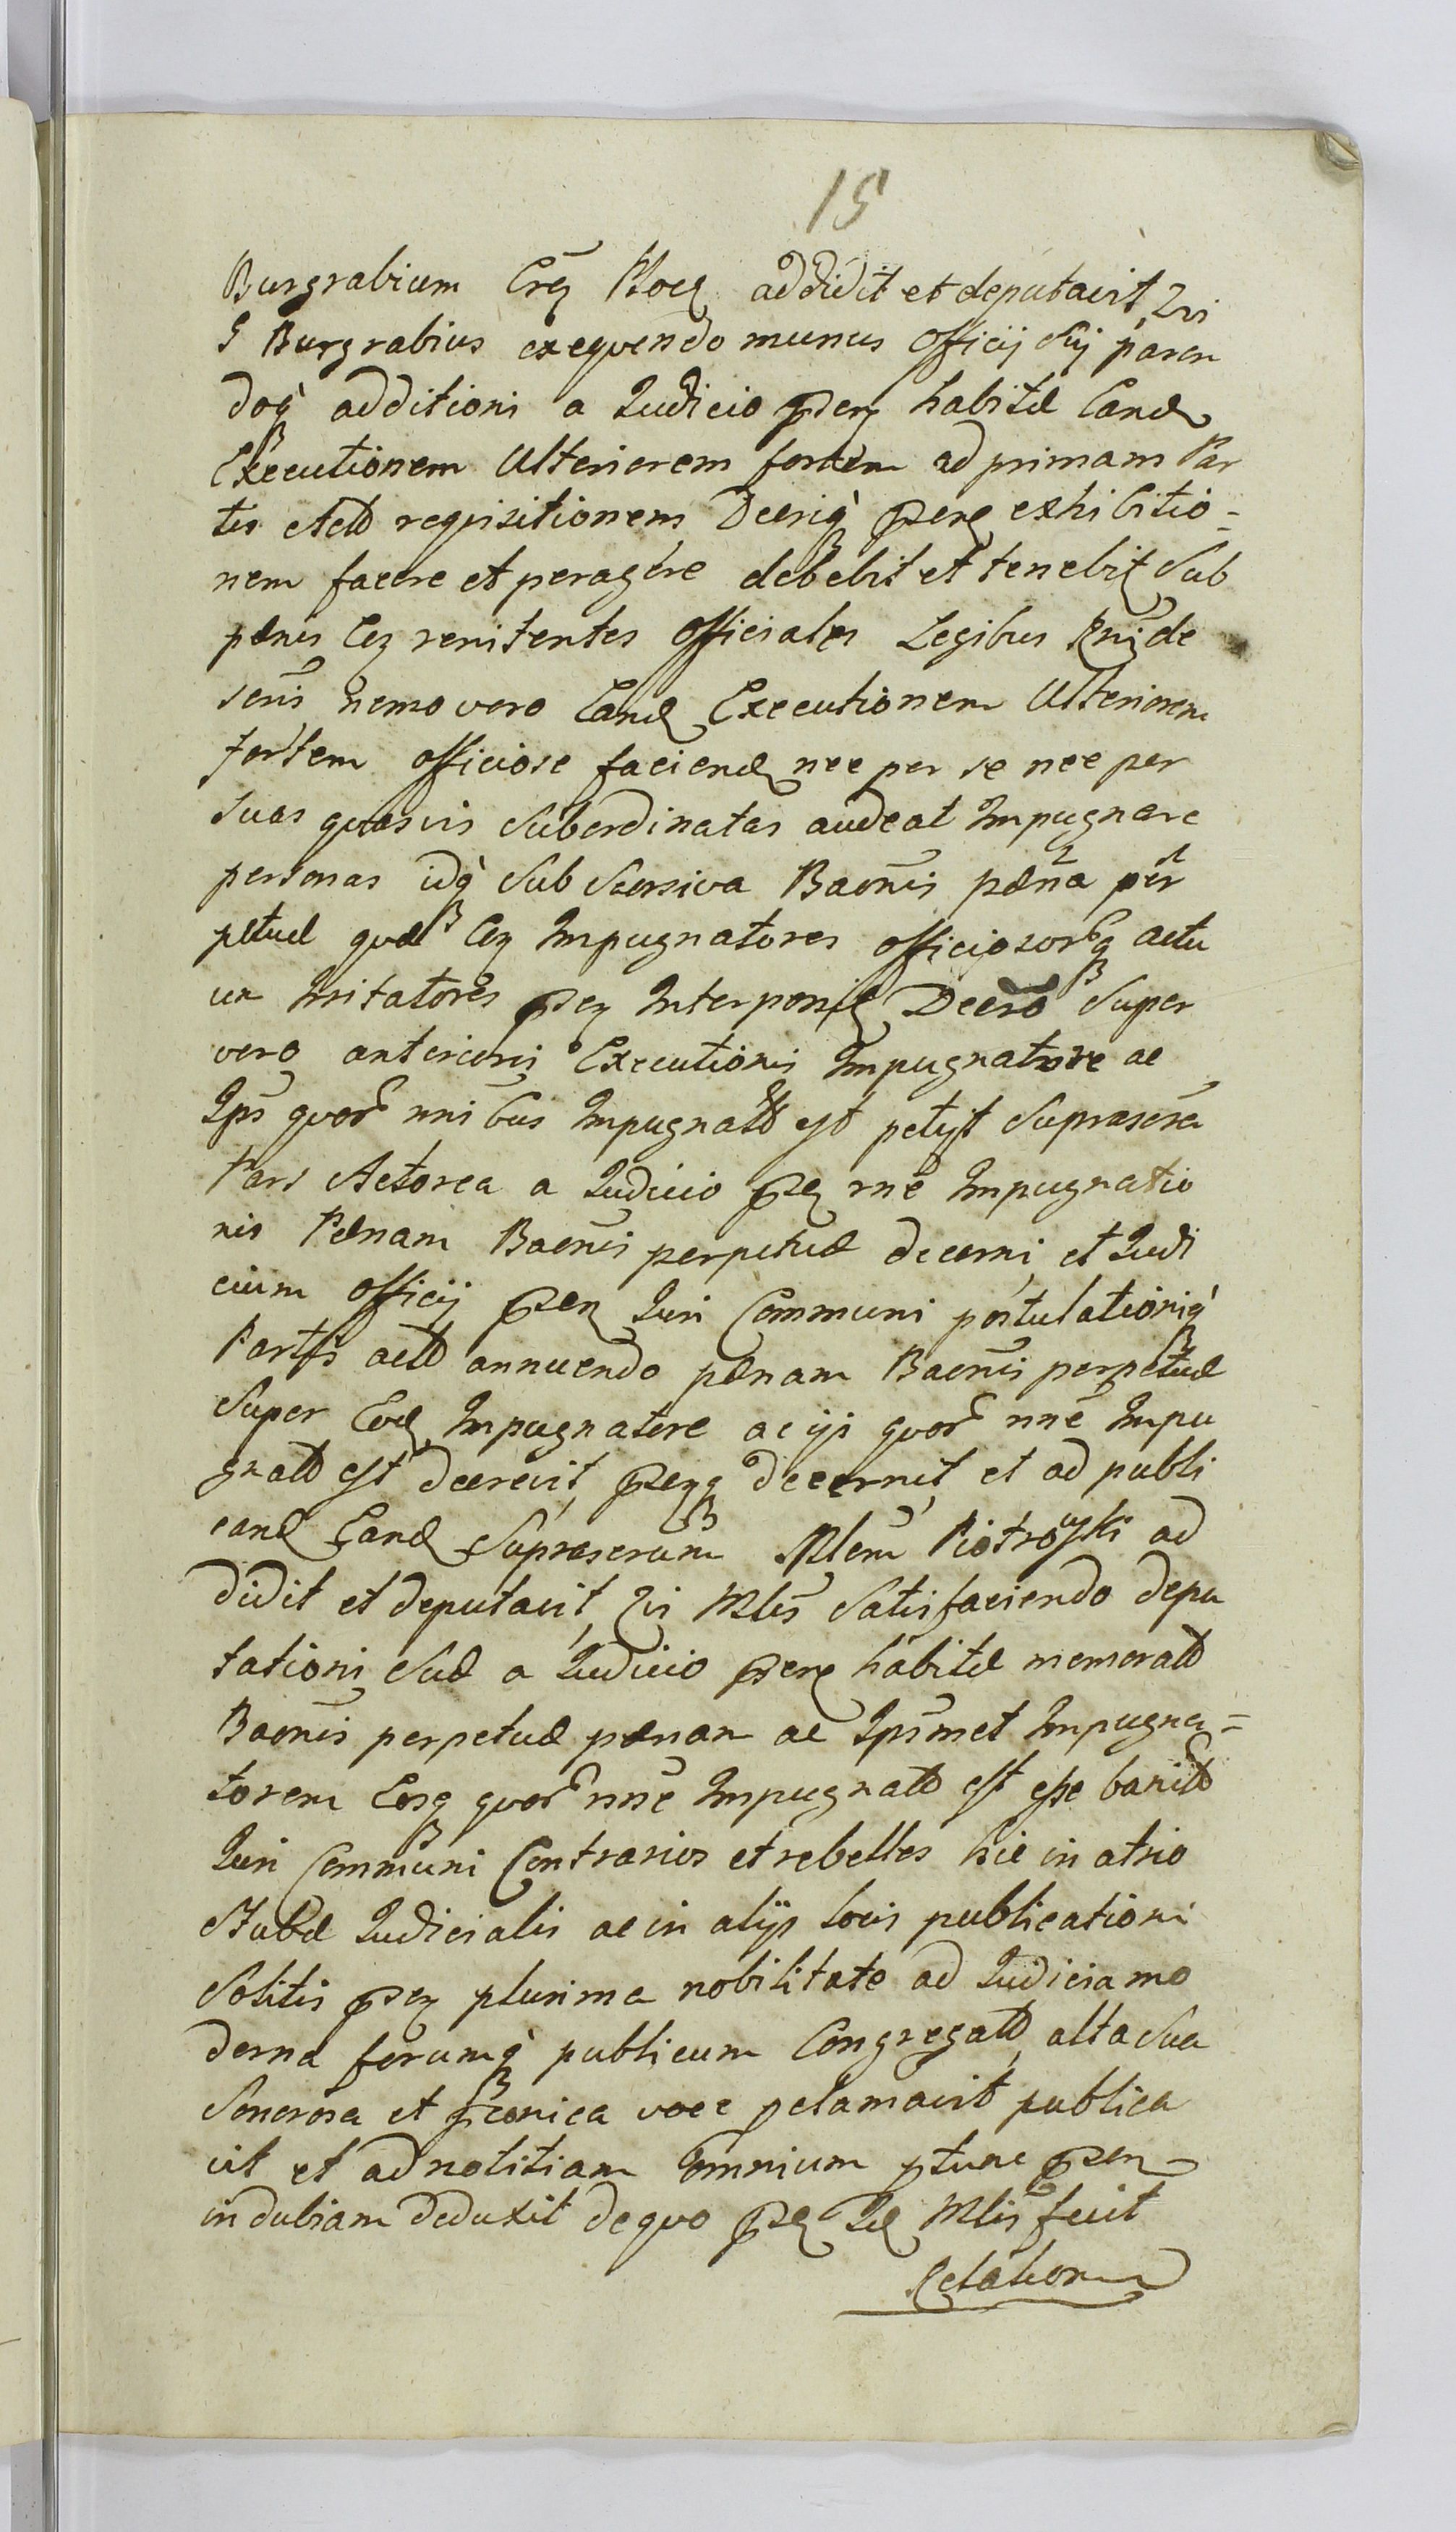 15
Burgrabium Crē Plocē addidit et deputavit, Qui
G Burgrabius exequendo munus Officij Sui paren
doq̀ additioni a Judicio p̄sen habitæ Eand
Executionem Ulteriorem fortem ad primam Par
tis Actæ requisitionem Decriq̀ p̄sens exhibitio=
nem facere et peragere debebit et tenebit Sub
pænis in renitentes Officiales Legibus Regni de
scris nemo vero Eand Executionem Ulteriorem
fortem officiose faciend nec per se nec per
Suas quasvis Subordinatas audeat Impugnare
personas idq̀ Sub Scersiva Baōnis pæna per
petuæ quæ in Impugnatores officiosorq actu
um Irritatores p̄sen Interponit Decrō Super
vero anterioris Executionis Impugnatore ac
Ips quor nnibus Impugnatæ est petijt Suprascra
Pars Actorea a Judicio p̄se rne Impugnatio
nis Pænam Baōnis perpetuæ decerni, et Judi
cium Officij p̄sen Juri Communi postulationiq̀
Partis actæ annuendo pænam Baōnis perpetuæ
Super Eod Impugnatore ac ijs quor nne Impu
gnatæ est decrevit, p̄senq decernit, et ad publi
cand Eand Suprascrum Mlem Piotrowski ad
didit et deputavit, Qui Mlis Satisfaciendo depu
tationi Suæ a Judicio p̄sens habitæ memoratæ
Baōnis perpetuæ pænam ac Ipsmet Impugna=
torem Eosq quor nne Impugnatæ est esse banitæ
Juri Communi Contrarios et rebelles hic in atrio
Stubæ Judicialis ac in alijs locis publicationi
Solitis p̄sen plurima nobilitate ad Judicia mo
derna forumq̀ publicum Congregatæ, alta Sua
Sonorosa et p̄conica voce pclamavit publica
vit et ad notitiam Omnium ptunc p̄sen
indubiam deduxit de quo p̄se Id Mlis fecit
Relationem